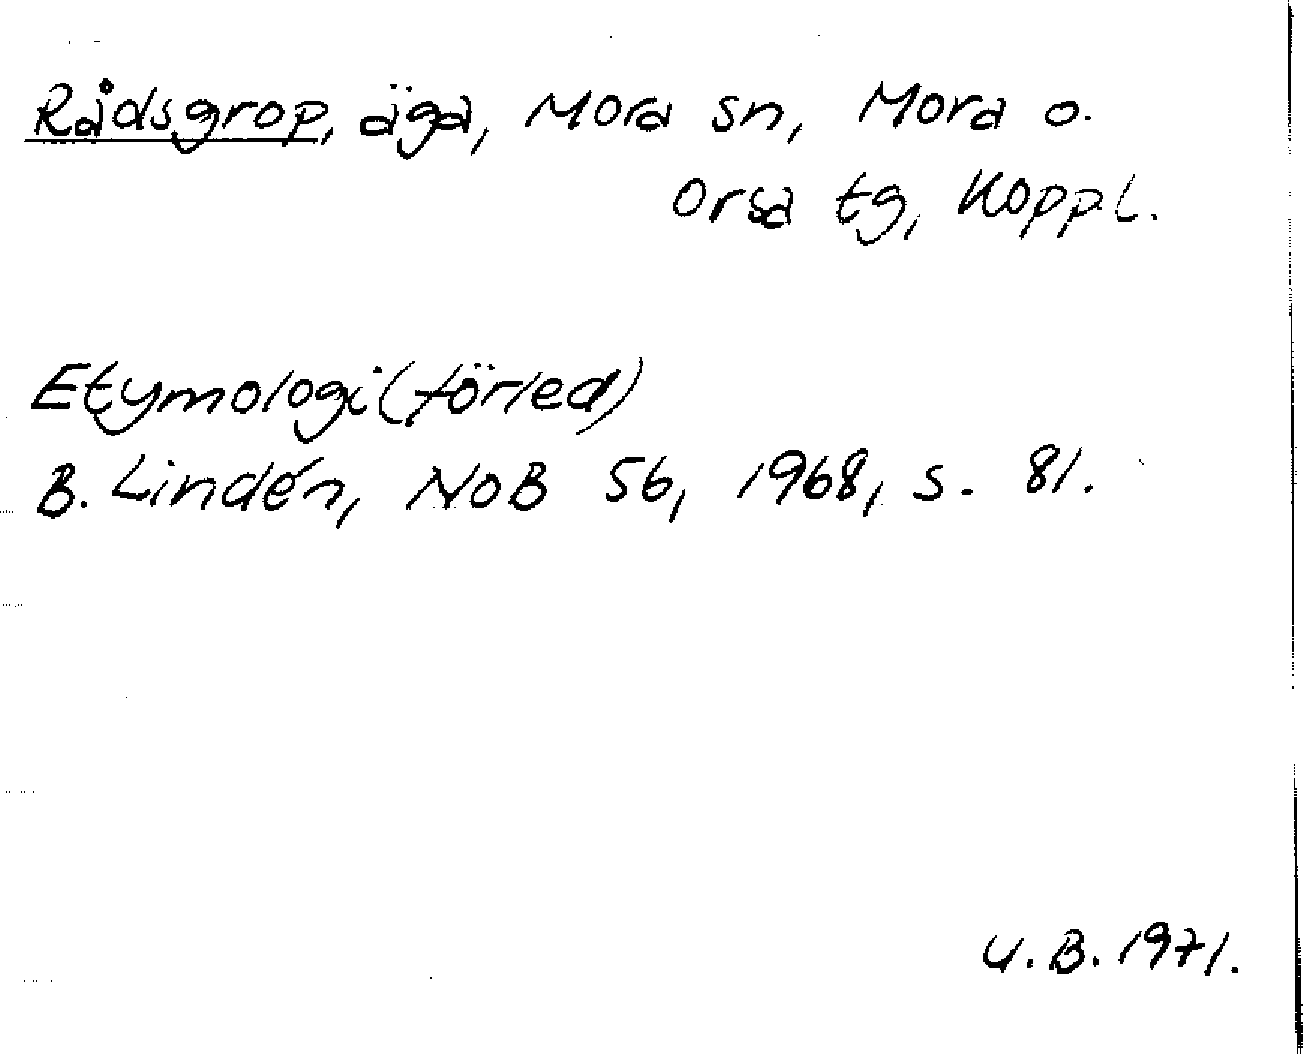 Rådsgrop, äga, Mora sn, Mora o.
Orsa tg, Koppl.
Etymologi (förled)
B. Lindén, NoB 56, 1968, s. 81.
U.B. 1971.